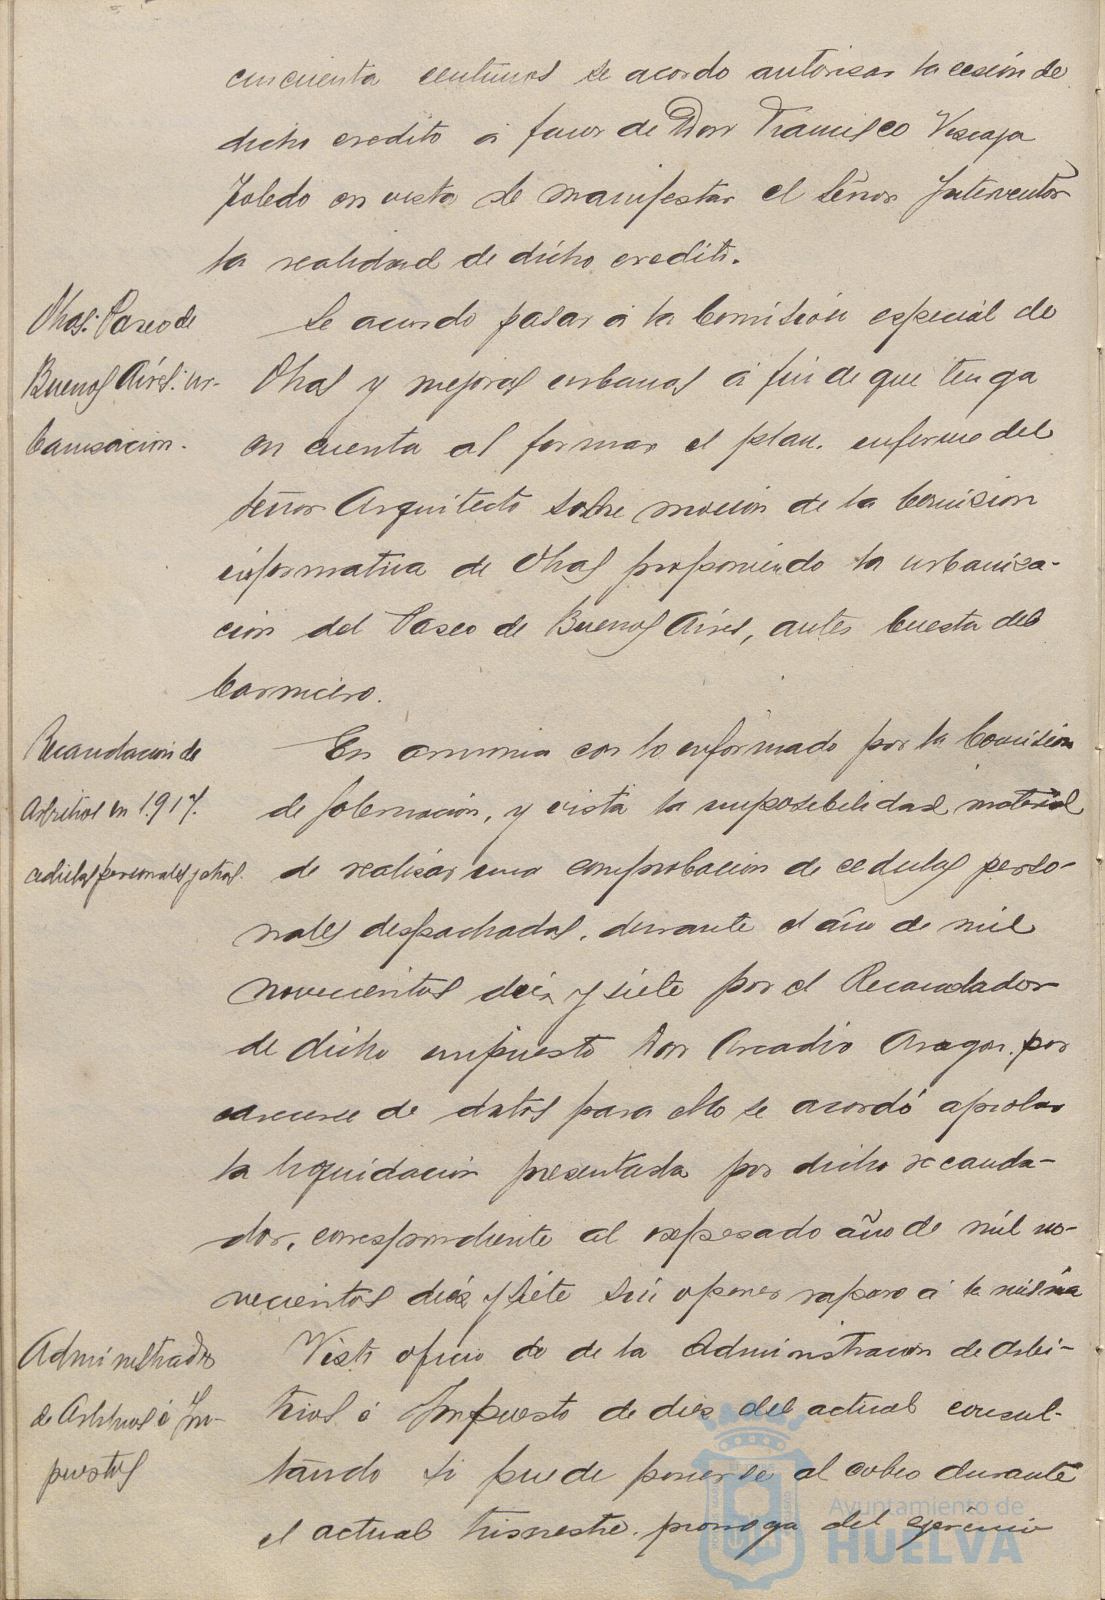 cincuenta centimos se acordo autorisar la cesión de
dicho credito á favor de Don Francisco Vizcaya
Toledo en vista de manifestar el Señor Interventor
la realidad de dicho credito.
Obras: Paseo de
Buenos Aires: ur-
banisación.
Se acordo pasar á la Comisión especial de
Obras y mejoras urbanas á fin de que tenga
en cuenta al formar el plan, informe del
Señor Arquitecto sobre moción de la Comision
informativa de Obras proponiendo la urbanisa-
ción del Paseo de Buenos Aires, antes Cuesta del
Carnicero.
Recaudación de
Arbitrios en 1.917.
cedulas personales y otras.
En armonia con lo informado por la Comision
de Gobernación, y vista la imposibilidad material
de realisar una comprobacion de cedulas perso-
nales despachadas, durante el año de mil
novecientos diez y siete por el Recaudador
de dicho impuesto Don Arcadio Aragon, por
carecerse de datos para ello se acordó aprobar
la liquidación presentada por dicho recauda-
dor, correspondiente al expresado año de mil no-
vecientos diez y siete sin oponer reparo á la misma
Administrador
de Arbitrios é Im-
puestos
Visto oficio do de la Administracion de Arbi-
trios é Impuesto de diez del actual consul-
tando si puede ponerse al cobro durante
el actual trimestre, prorroga del ejercicio
Ayuntamiento de
HUELVA